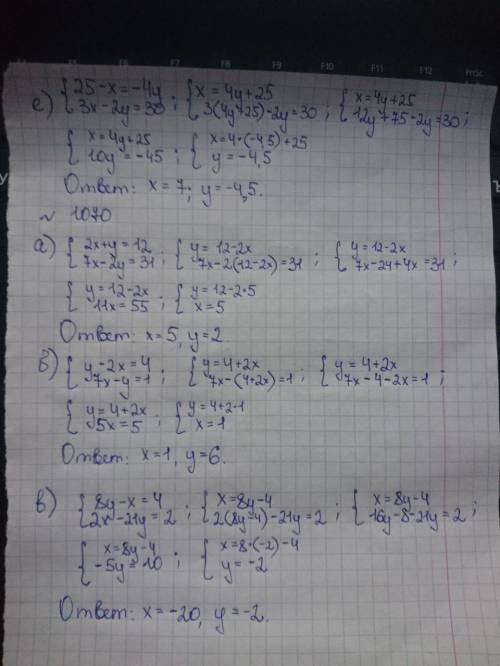 F6 F7 F8 F9 F10 F11 F12
е) { 25-x=-4y 3x-2y=30 ; { x=4y+25 3(4y+25)-2y=30 ; { x=4y+25 12y+75-2y=30 ;
{ x=4y+25 10y=-45 ; { x=4·(-4,5)+25 y=-4,5
Ответ: x=7; y=-4,5.
№ 1070
а) { 2x+y=12 7x-2y=31 ; { y=12-2x 7x-2(12-2x)=31 ; { y=12-2x 7x-24+4x=31 ;
{ y=12-2x 11x=55 ; { y=12-2·5 x=5
Ответ: x=5, y=2.
б) { y-2x=4 7x-y=1 ; { y=4+2x 7x-(4+2x)=1 ; { y=4+2x 7x-4-2x=1 ;
{ y=4+2x 5x=5 ; { y=4+2·1 x=1
Ответ: x=1, y=6.
в) { 8y-x=4 2x-21y=2 ; { x=8y-4 2(8y-4)-21y=2 ; { x=8y-4 16y-8-21y=2 ;
{ x=8y-4 -5y=10 ; { x=8·(-2)-4 y=-2
Ответ: x=-20, y=-2.